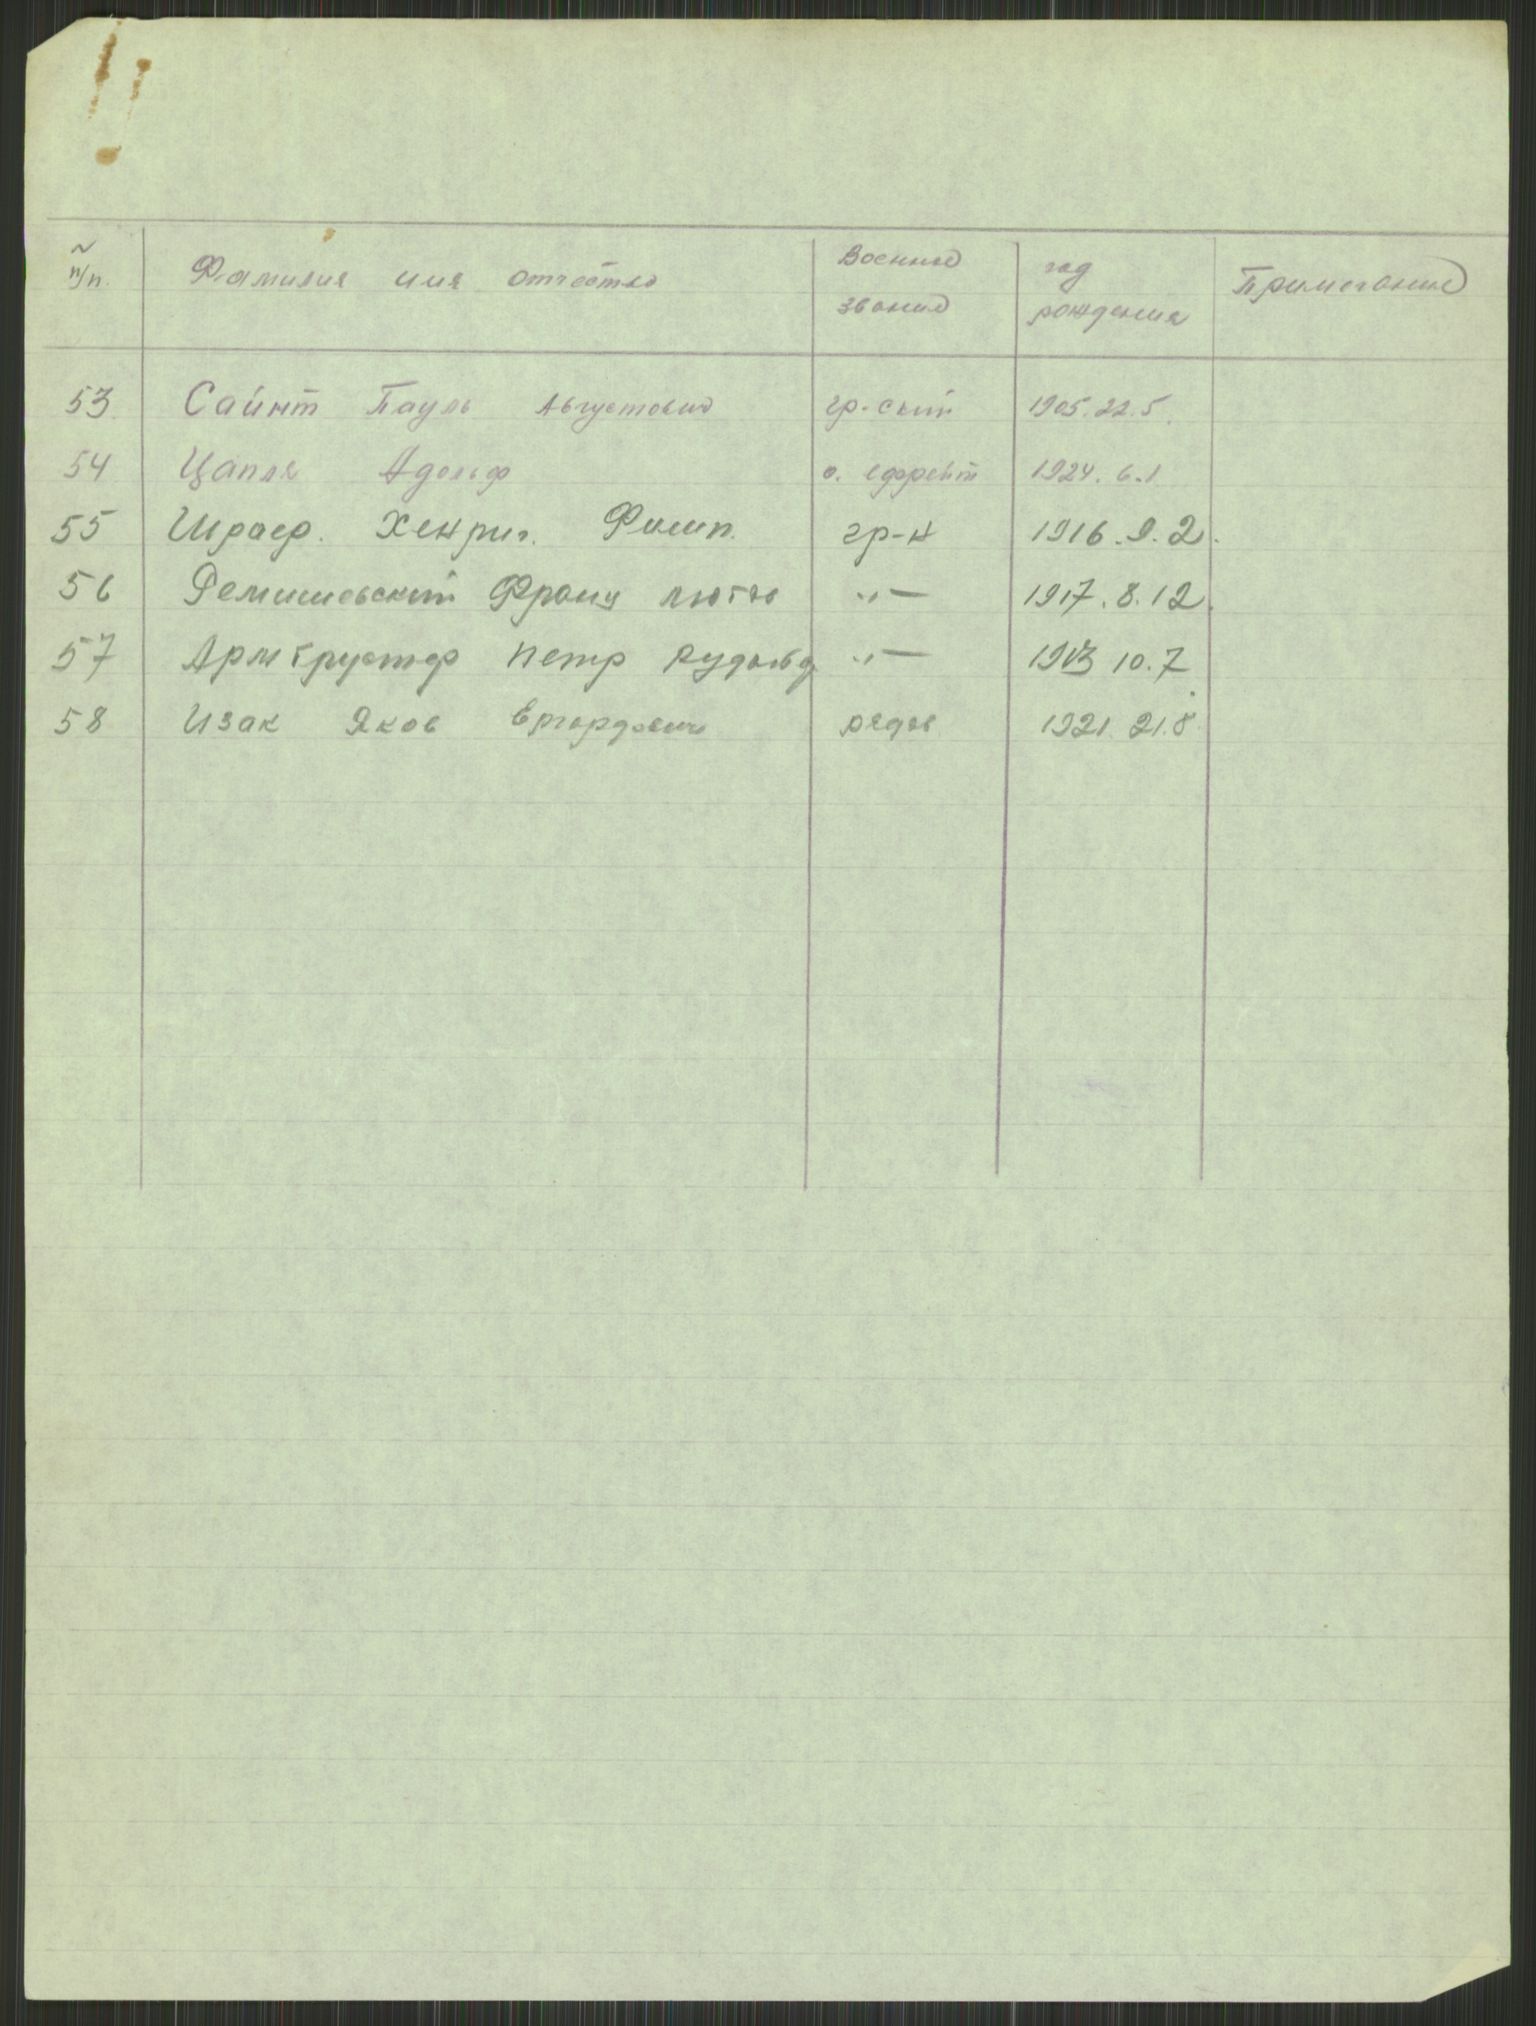 № п/п. Фамилия имя отчество Военное звание год рождения Примечание
53 Сайнт Пауль Августович гр-ский 1905.22.5.
54 Цапля Адольф о. ефрейт 1924.6.1
55 Шраер. Хенриг. Филип. гр-н 1916.9.2.
56 Франц -"- 1917.8.12.
57 Армбрустер Петр Рудольф -"- 10.7
58 Изак Яков рядов 1921.21.8.